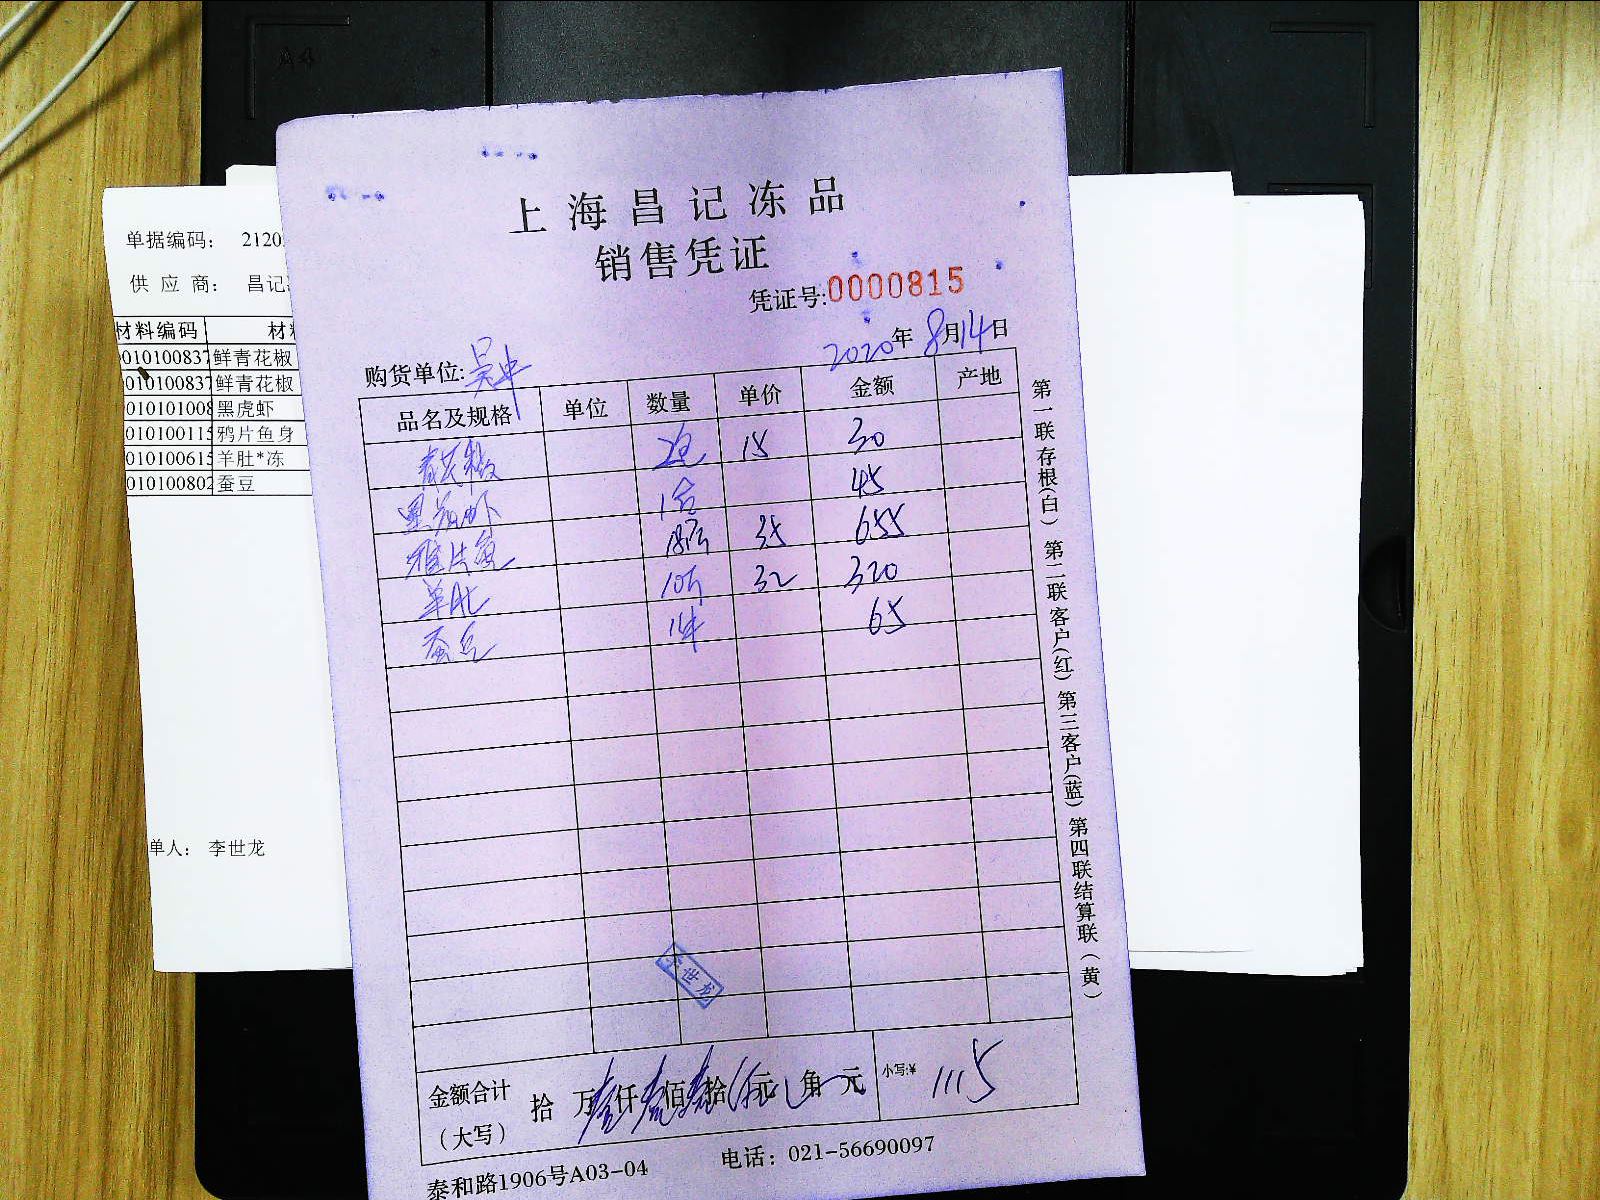 A4
单据编码： 2120
供 应 商： 昌记
材料编码 材
010100837 鲜青花椒
010100837 鲜青花椒
01010100 黑虎虾
010100115 鸦片鱼身
010100615 羊肚*冻
010100802 蚕豆
单人： 李世龙
上海昌记冻品
销售凭证
凭证号:0000815
2020年8月14日
购货单位:吴中
品名及规格 单位 数量 单价 金额 产地
青花椒 2包 15 30
黑虎虾 1合 45
雅片鱼 35 655
羊肚 10斤 32 320
蚕豆 1件 65
李世龙
金额合计（大写） 拾 万壹仟壹佰壹拾伍元 角 元 小写:¥ 1115
泰和路1906号A03-04 电话：021-56690097
第一联存根(白) 第二联客户(红) 第三客户(蓝) 第四联结算联(黄)